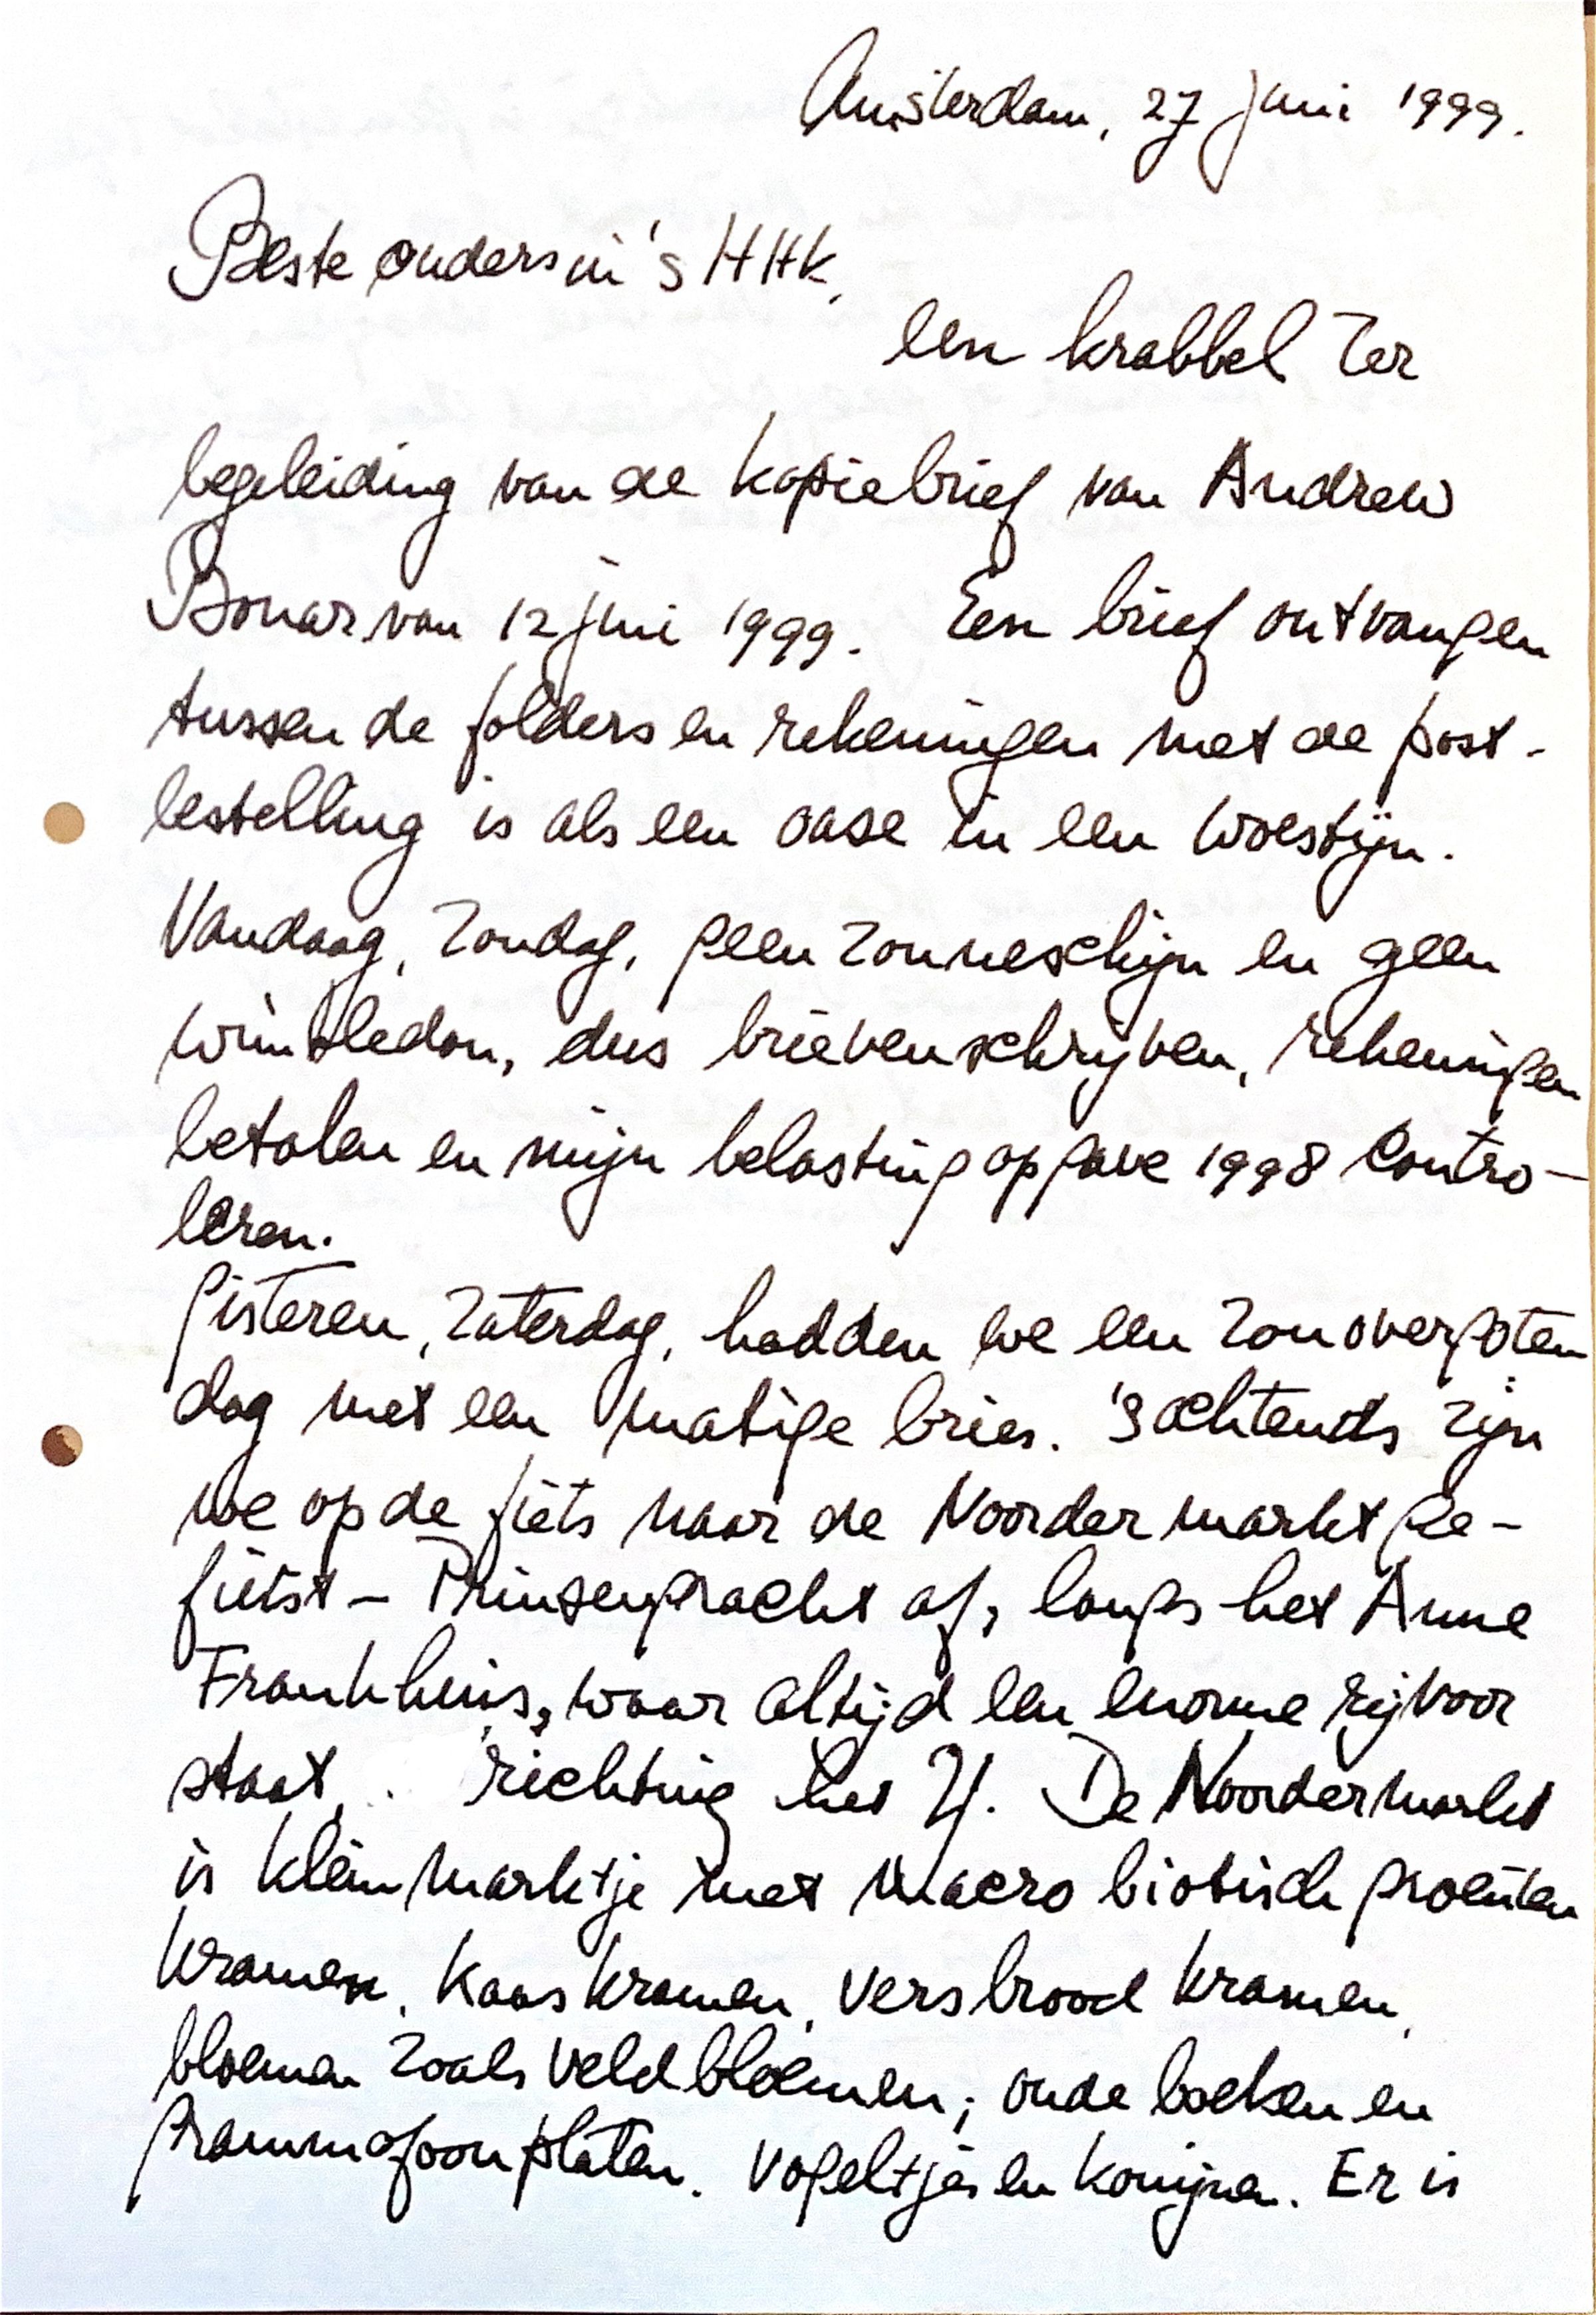 Amsterdam, 27 juni 1999.
Beste ouders in 's HHk,
een krabbel ter
begeleiding van de kopiebrief van Andrew
Bonar van 12 juni 1999. Een brief ontvangen
tussen de folders en rekeningen met de post-
bestelling is als een oase in een woestijn.
Vandaag, zondag, geen zonneschijn en geen
Wimbledon, dus brieven schrijven, rekeningen
betalen en mijn belastingopgave 1998 contro-
leren.
Gisteren, zaterdag, hadden we een zonovergoten
dag met een matige bries. 's ochtends zijn
we op de fiets naar de Noordermarkt ge-
fietst - Prinsengracht af, langs het Anne
Frankhuis, waar altijd een enorme rij voor
staat, richting het IJ. De Noordermarkt
is klein marktje met macro biotisch groenten
kramen, kaaskramen, vers brood kramen,
bloemen zoals veldbloemen; oude boeken en
grammofoonplaten. Vogeltjes en konijnen. Er is